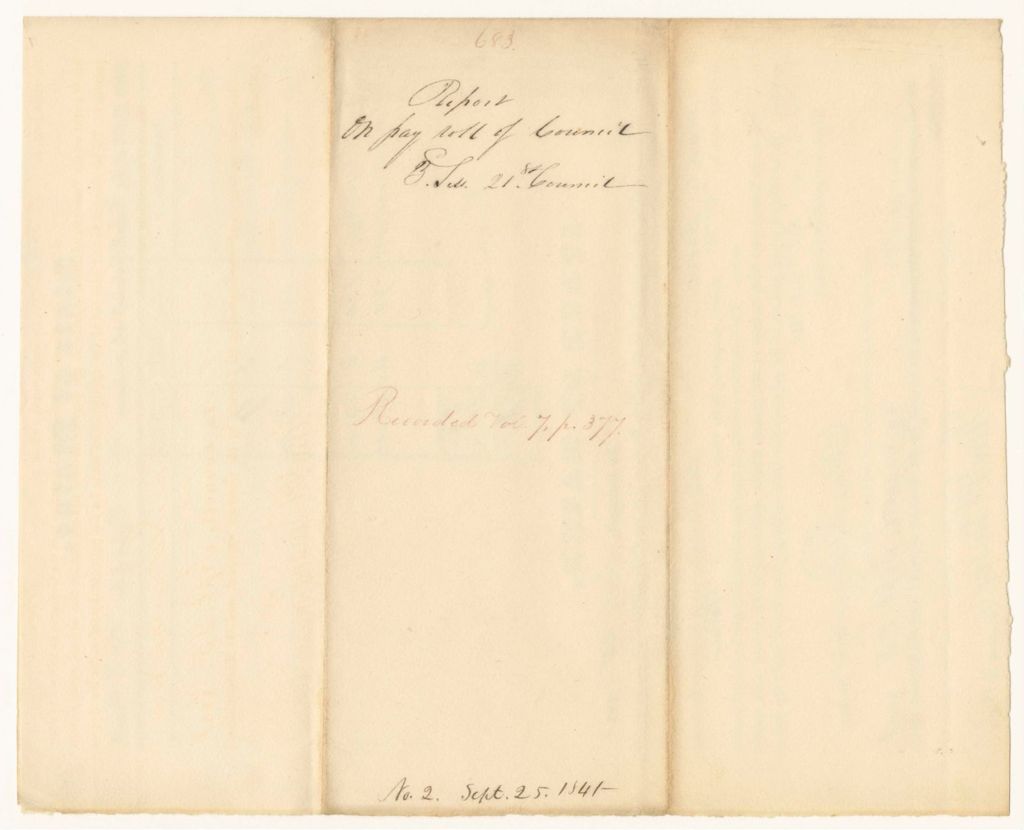 683.
Report
On pay roll of Council
E. Sess. 21st Council
Recorded Vol. 7, p. 377.
No. 2. Sept. 25. 1841